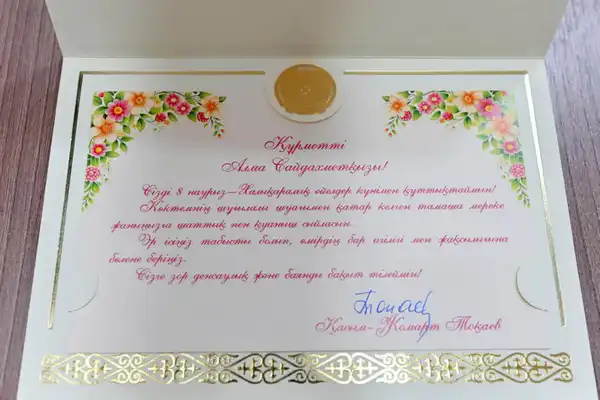 Құрметті
Алма Сайдахметқызы!
Сізді 8 наурыз–Халықаралық әйелдер күнімен құттықтаймын!
Көктемнің шуғылалы шуағымен қатар келген тамаша мереке
жаныңызға шаттық пен қуаныш сыйласын.
Әр ісіңіз табысты болып, өмірдің бар игілігі мен жақсылығына
бөлене беріңіз.
Сізге зор денсаулық және баянды бақыт тілеймін!
Тоқаев
Қасым-Жомарт Тоқаев